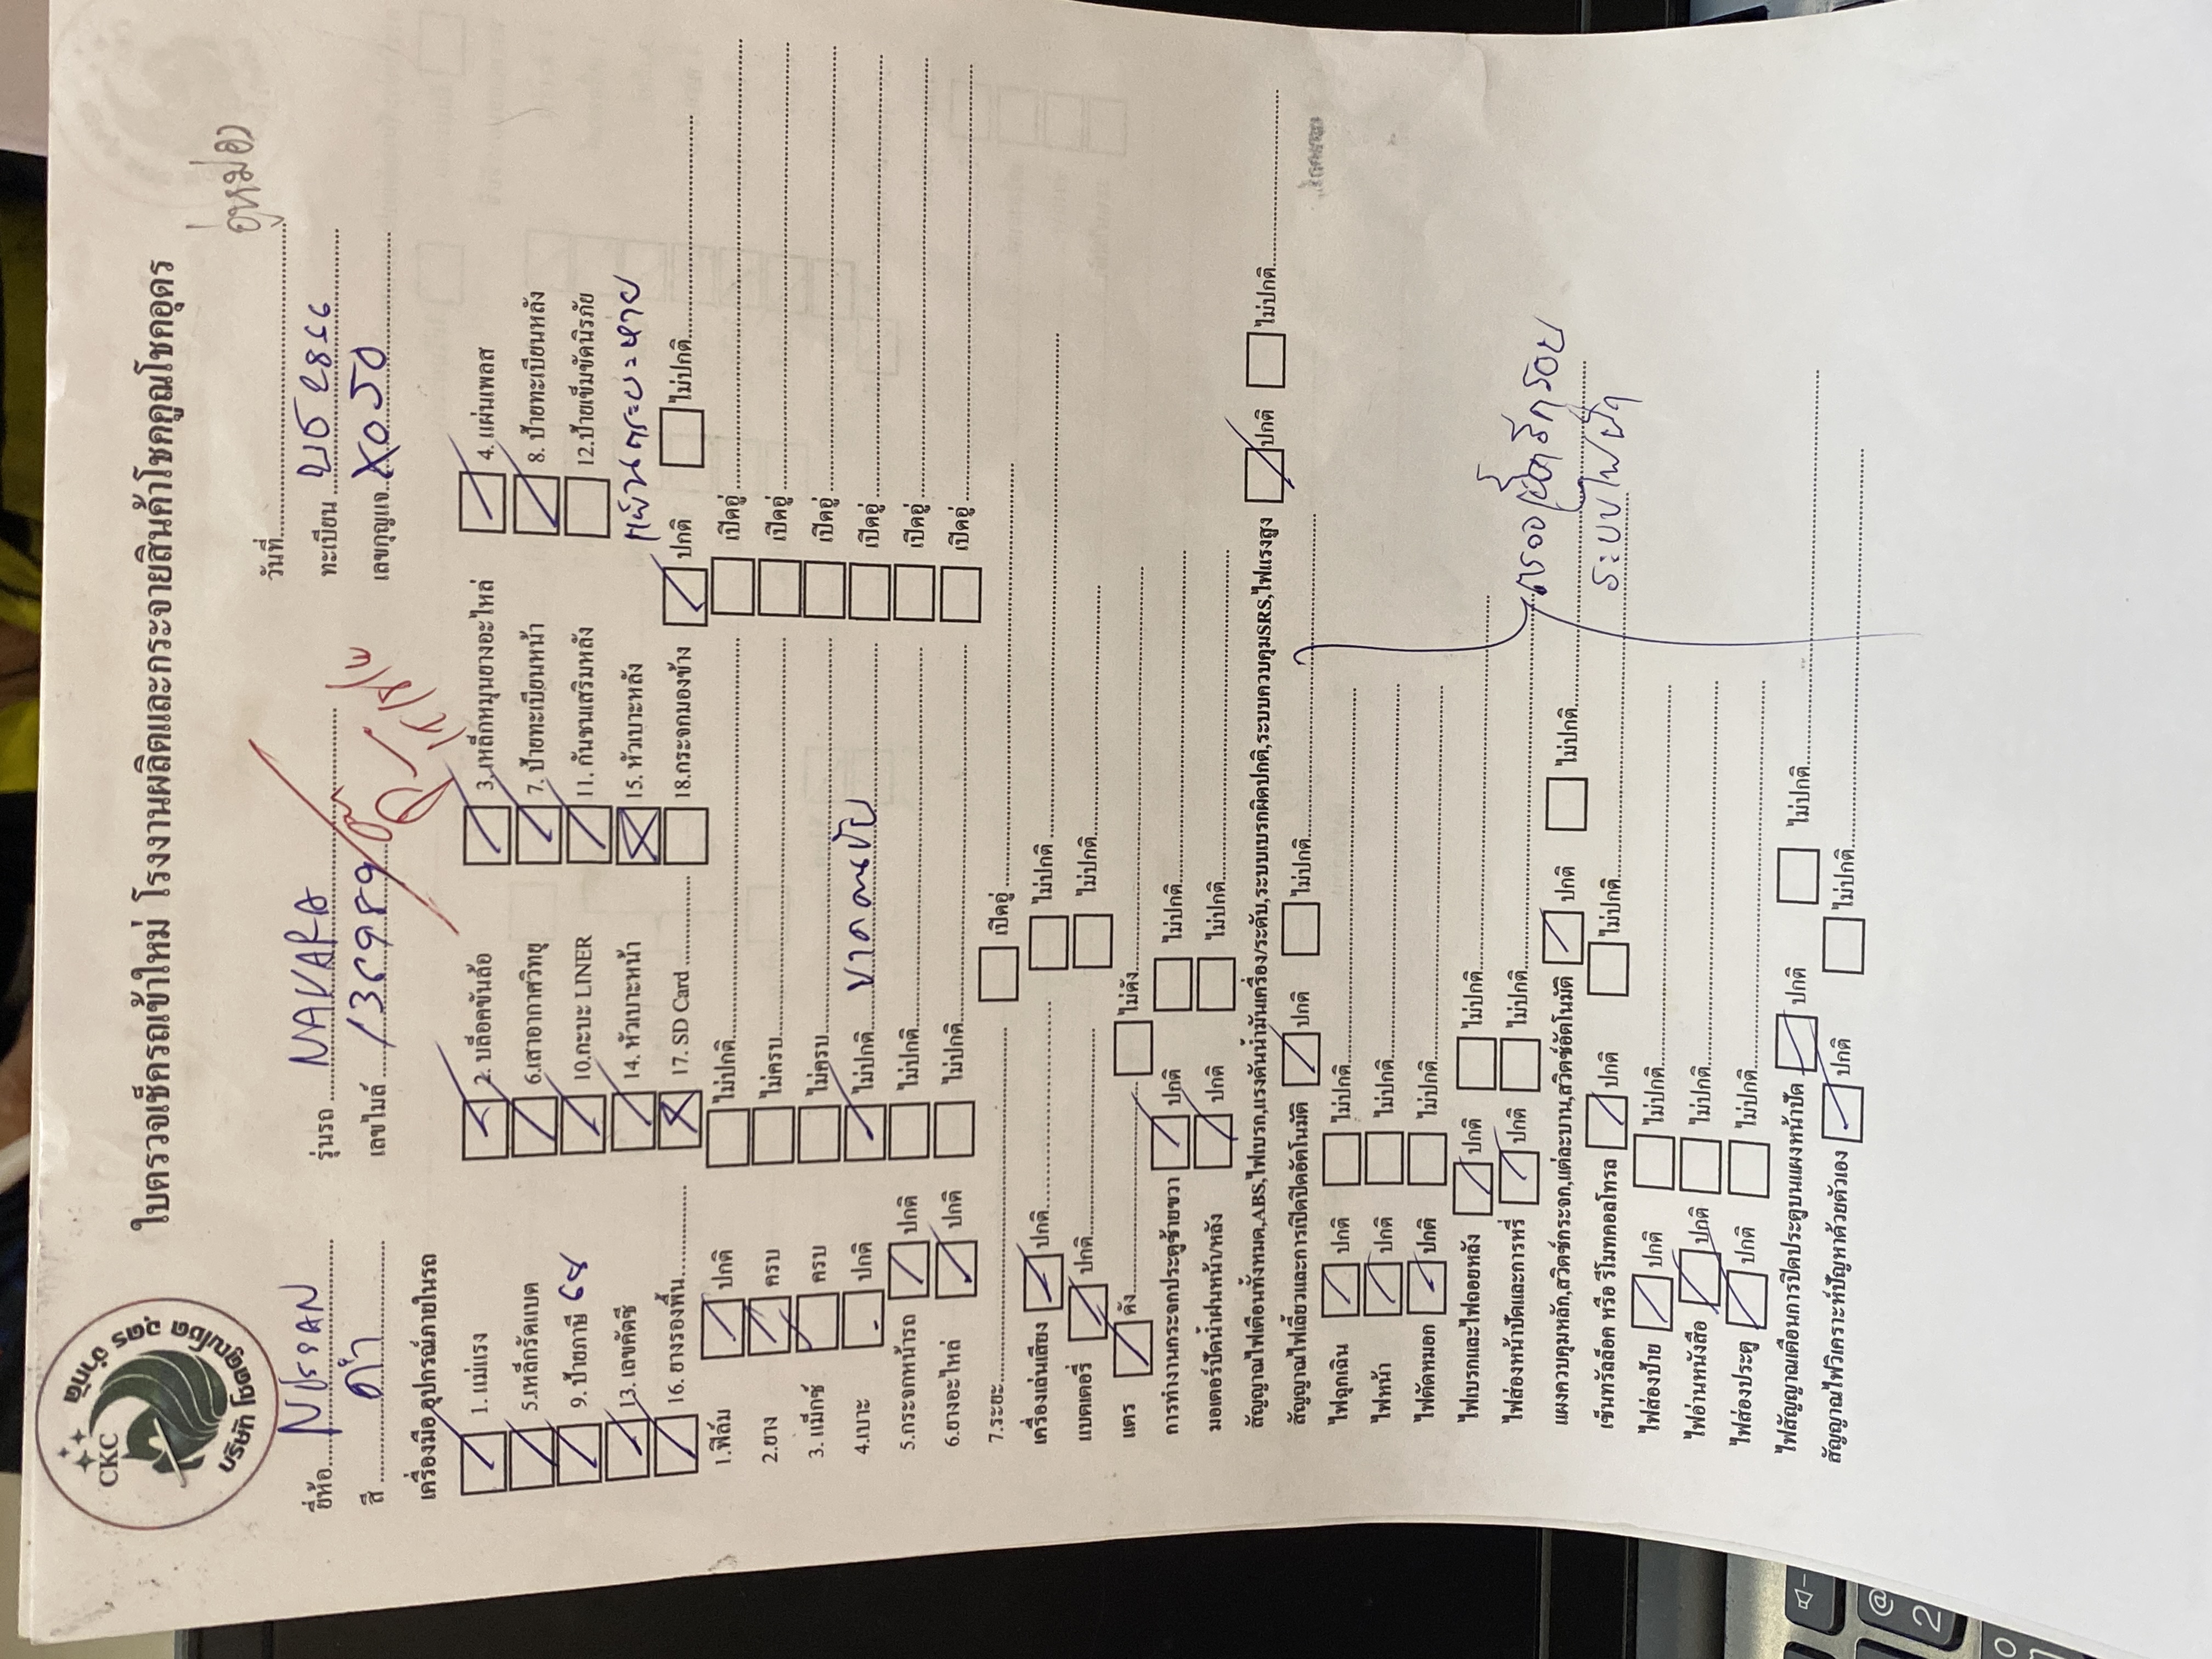 CKC
บริษัท โชคคูณโชค อุดร จำกัด
ใบตรวจเช็ครถเข้าใหม่ โรงงานผลิตและกระจายสินค้าโชคคูณโชคอุดร
วันที่
ยี่ห้อ NISSAN รุ่นรถ NAVARA ทะเบียน
สี ดำ เลขไมล์ 136989 เลขกุญแจ X050
เครื่องมือ อุปกรณ์ภายในรถ
1. แม่แรง 2. บล็อคขันล้อ 3. เหล็กหมุนยางอะไหล่ 4. แผ่นเพลส
5.เหล็กรัดแบต 6.เสาอากาศวิทยุ 7. ป้ายทะเบียนหน้า 8. ป้ายทะเบียนหลัง
9. ป้ายภาษี 68 10.กะบะ LINER 11. กันชนเสริมหลัง 12.ป้ายเข็มขัดนิรภัย
13. เลขคัตซี 14. หัวเบาะหน้า 15. หัวเบาะหลัง
16. ยางรองพื้น 17. SD Card 18.กระจกมองข้าง ปกติ ไม่ปกติ
1.ฟิล์ม ปกติ ไม่ปกติ เปิดอู่
2.ยาง ครบ ไม่ครบ เปิดอู่
3. แม็กซ์ ครบ ไม่ครบ เปิดอู่
4.เบาะ ปกติ ไม่ปกติ ขาดคนขับ เปิดอู่
5.กระจกหน้ารถ ปกติ ไม่ปกติ เปิดอู่
6.ยางอะไหล่ ปกติ ไม่ปกติ เปิดอู่
7.ระยะ เปิดอู่
เครื่องเล่นเสียง ปกติ ไม่ปกติ
แบตเตอรี่ ปกติ ไม่ปกติ
แตร ดัง ไม่ดัง
การทำงานกระจกประตูซ้ายขวา ปกติ ไม่ปกติ
มอเตอร์ปัดน้ำฝนหน้า/หลัง ปกติ ไม่ปกติ
สัญญาณไฟเตือนทั้งหมด,ABS,ไฟเบรก,แรงดันน้ำมันเครื่อง/ระดับ,ระบบเบรกผิดปกติ,ระบบควบคุมSRS,ไฟแรงสูง ปกติ ไม่ปกติ
สัญญาณไฟเลี้ยวและการเปิดปิดอัตโนมัติ ปกติ ไม่ปกติ
ไฟฉุกเฉิน ปกติ ไม่ปกติ
ไฟหน้า ปกติ ไม่ปกติ
ไฟตัดหมอก ปกติ ไม่ปกติ
ไฟเบรกและไฟถอยหลัง ปกติ ไม่ปกติ
ไฟส่องหน้าปัดและการหรี่ ปกติ ไม่ปกติ
แผงควบคุมหลัก,สวิตซ์กระจก,แต่ละบาน,สวิตซ์อัตโนมัติ ปกติ ไม่ปกติ
เซ็นทรัลล็อค หรือ รีโมทคอลโทรล ปกติ ไม่ปกติ
ระบบไฟ
ไฟส่องป้าย ปกติ ไม่ปกติ
ไฟอ่านหนังสือ ปกติ ไม่ปกติ
ไฟส่องประตู ปกติ ไม่ปกติ
ไฟสัญญาณเตือนการปิดประตูบนแผงหน้าปัด ปกติ ไม่ปกติ
สัญญาณไฟวิเคราะห์ปัญหาด้วยตัวเอง ปกติ ไม่ปกติ